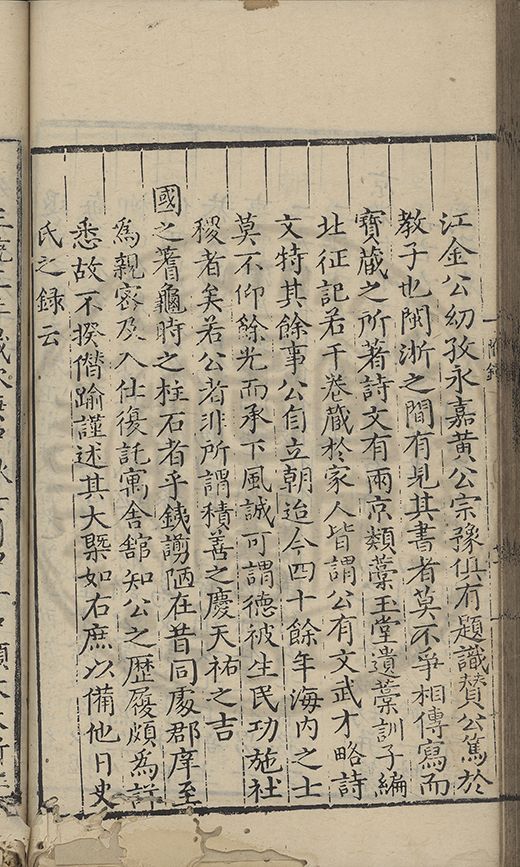 江金公幼孜永嘉黃公宗豫俱有題識贊公篤於
教子也閩浙之間有見其書者莫不爭相傳寫而
寳蔵之所著詩文有兩京類藁玉堂遺藁訓子編
北征記若干卷蔵於家人皆謂公有文武才略詩
文特其餘事公自立朝迨今四十餘年海内之士
莫不仰餘光而承下風誠可謂德被生民功施社
稷者矣若公者非所謂積善之慶天祐之吉
國之蓍龜時之柱石者乎銕謭陋在昔同處郡庠至
為親密及入仕復託寓舍舘知公之歴履頗為詳
悉故不揆僭踰謹述其大槩如右庶以備他日史
氏之録云